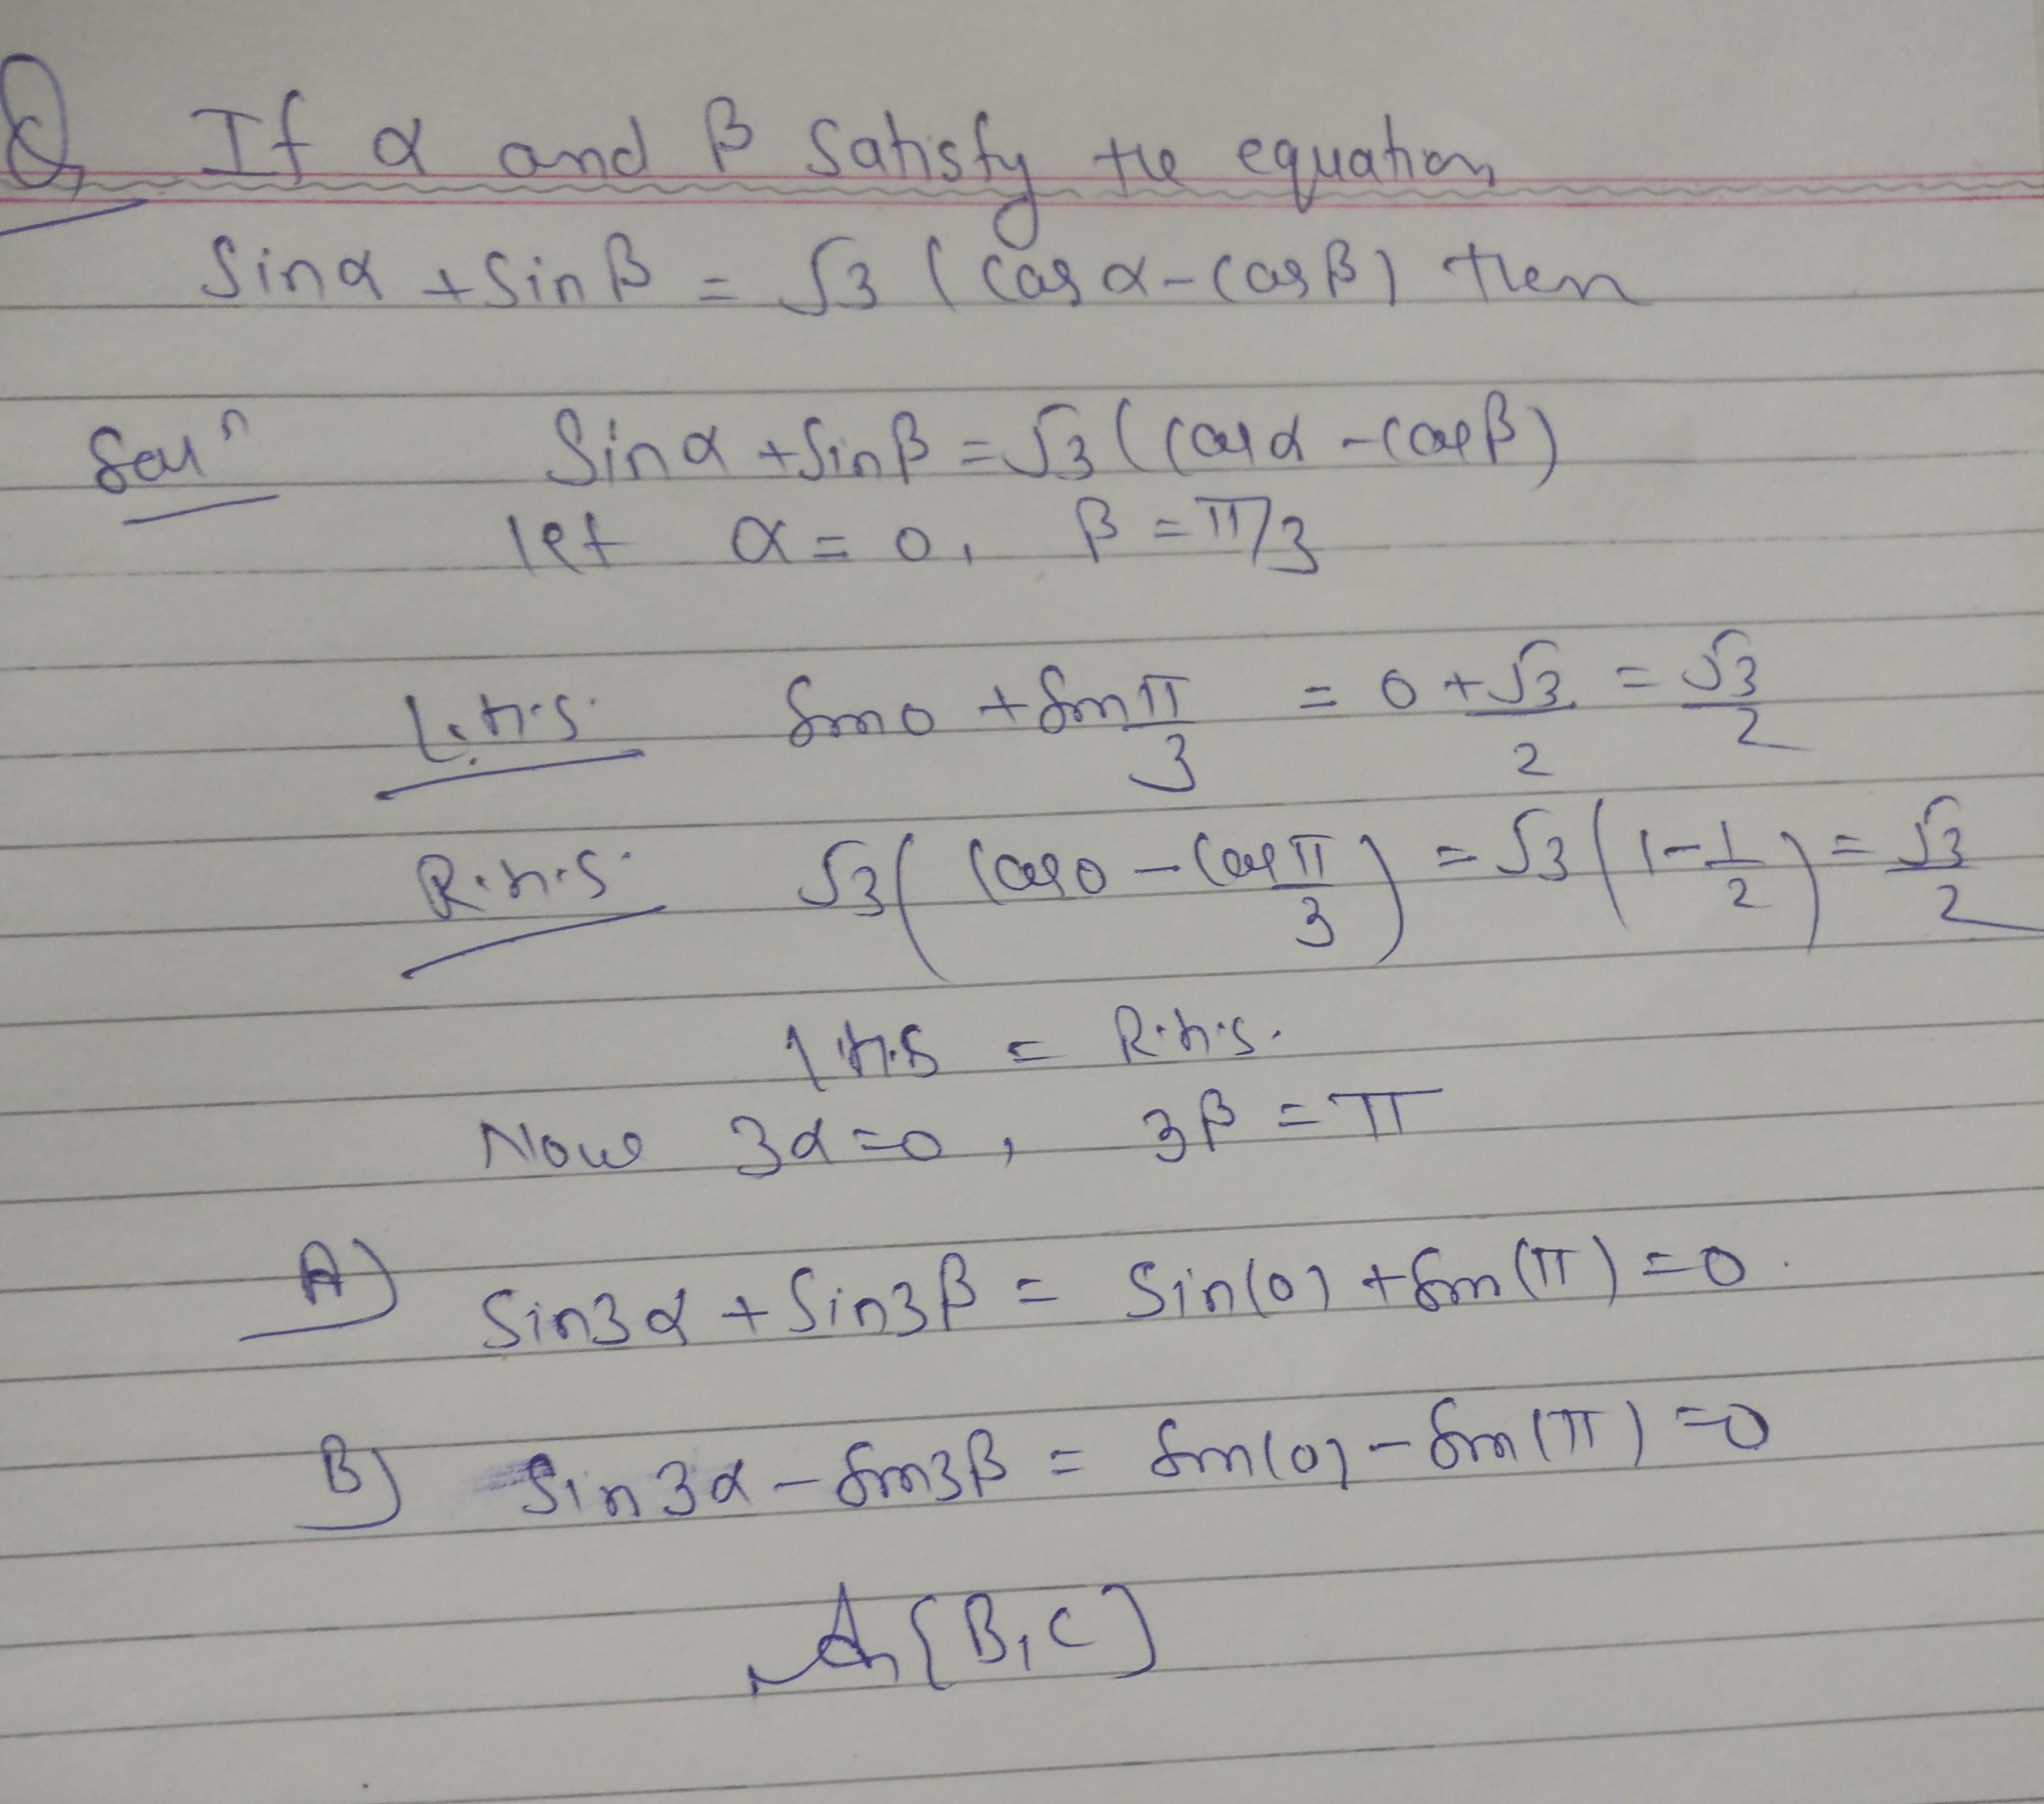 Q If α and β satisfy the equation
Sinα + Sinβ = √3 (Cosα - Cosβ) then
Solⁿ Sinα + Sinβ = √3 (Cosα - Cosβ)
let α = 0, β = π/3
L.H.S. Sin0 + Sin π/3 = 0 + √3/2 = √3/2
R.H.S. √3 (Cos0 - Cos π/3) = √3 (1 - 1/2) = √3/2
L.H.S = R.H.S.
Now 3α = 0, 3β = π
A) Sin3α + Sin3β = Sin(0) + Sin(π) = 0.
B) Sin3α - Sin3β = Sin(0) - Sin(π) = 0
A, [B, C]